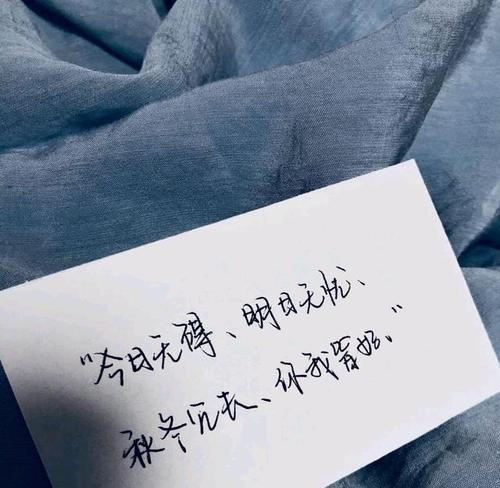 “今日无碍、明日无忧、
秋冬冗长、你我皆好。”